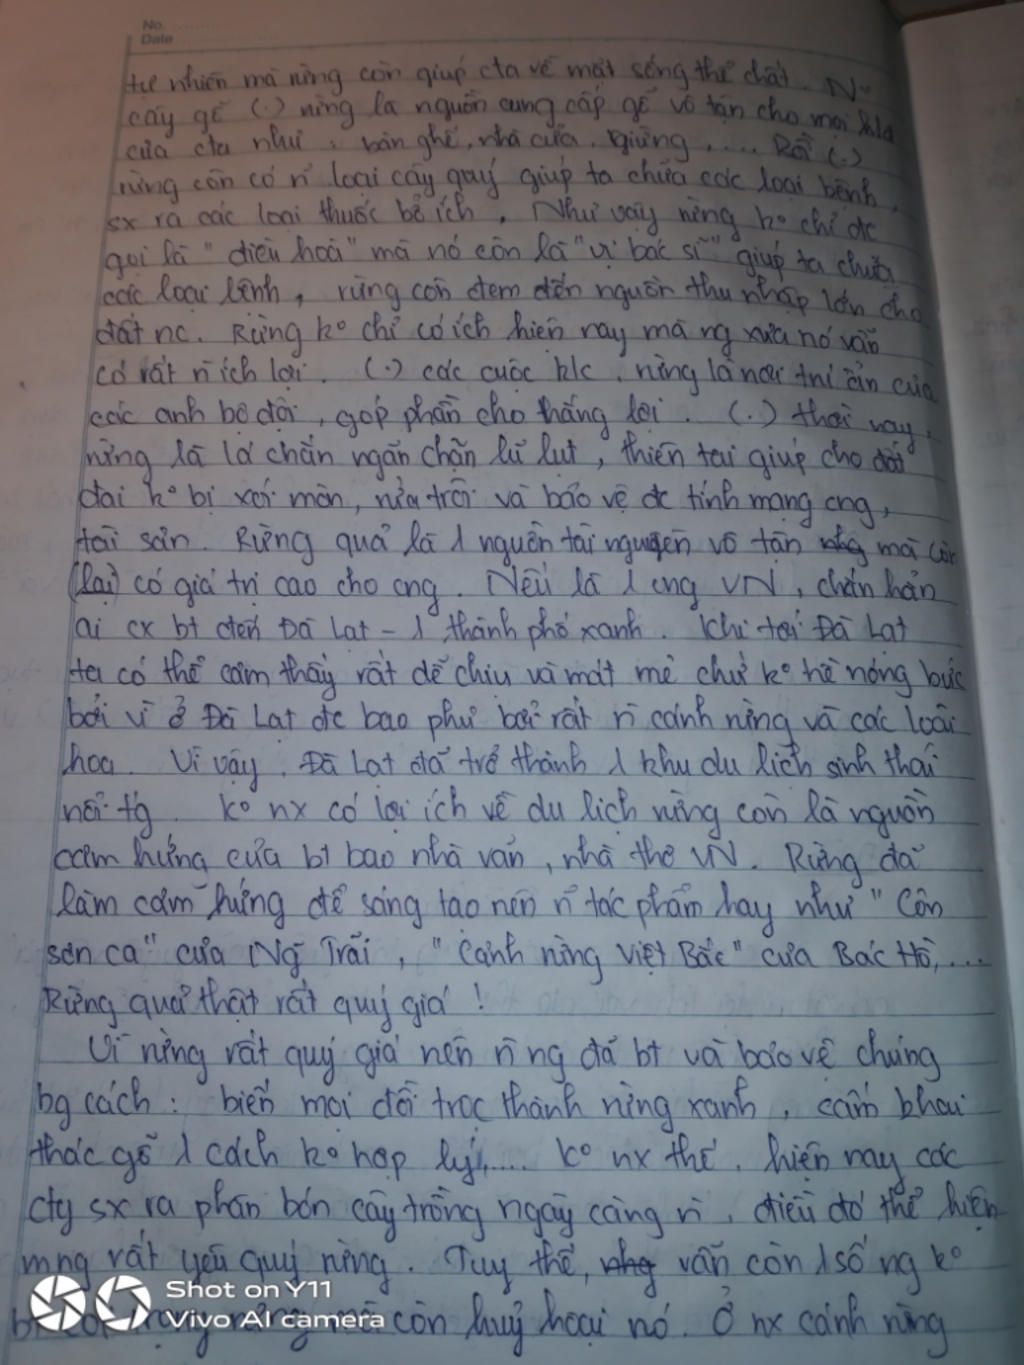 No.
Date
tự nhiên mà rừng còn giúp cta về mặt sống thể chất. N~
cây gỗ (.) rừng là nguồn cung cấp gỗ vô tận cho mọi
của cta như : bàn ghế, nhà cửa, giường, .... Rồi (.)
rừng còn có n~ loại cây quý giúp ta chữa các loại bệnh,
sx ra các loại thuốc bổ ích. Như vậy rừng k° chỉ đc
gọi là " điều hoà " mà nó còn là " vị bác sĩ " giúp ta chữa
các loại bệnh, rừng còn đem đến nguồn thu nhập lớn cho
đất nc. Rừng k° chỉ có ích hiện nay mà ng xưa nó vẫn
có rất n` ích lợi. (.) các cuộc k/c, rừng là nơi trú ẩn của
các anh bộ đội, góp phần cho thắng lợi. (.) thời nay,
rừng là lá chắn ngăn chặn lũ lụt, thiên tai giúp cho đất
đai k° bị xói mòn, rửa trôi và bảo vệ đc tính mạng cng,
tài sản. Rừng quả là 1 nguồn tài nguyên vô tận nhg mà còn
(lại) có giá trị cao cho cng. Nếu là 1 cng VN, chắn hẳn
ai cx bt đến Đà Lạt - 1 thành phố xanh. Khi tới Đà Lạt
ta có thể cảm thấy rất dễ chịu và mát mẻ chứ k° hề nóng bức
bởi vì ở Đà Lạt đc bao phủ bởi rất n` cánh rừng và các loài
hoa. Vì vậy, Đà Lạt đã trở thành 1 khu du lịch sinh thái
nổi tg. K° nx có lợi ích về du lịch rừng còn là nguồn
cảm hứng của bt bao nhà văn, nhà thơ VN. Rừng đã
làm cảm hứng để sáng tạo nên n~ tác phẩm hay như " Côn
sơn ca " của Ng~ Trãi, " Cảnh rừng Việt Bắc " của Bác Hồ, ...
Rừng quả thật rất quý giá !
Vì rừng rất quý giá nên n` ng đã bt và bảo vệ chúng
bg cách : biến mọi đồi trọc thành rừng xanh, cấm khai
thác gỗ 1 cách k° hợp lý, .... K° nx thế, hiện nay các
cty sx ra phân bón cây trồng ngày càng n`, điều đó thể hiện
mng rất yêu quý rừng. Tuy thế, nhg vẫn còn 1 số ng k°
rừng mà còn huỷ hoại nó. Ở nx cánh rừng
Shot on Y11
Vivo AI camera